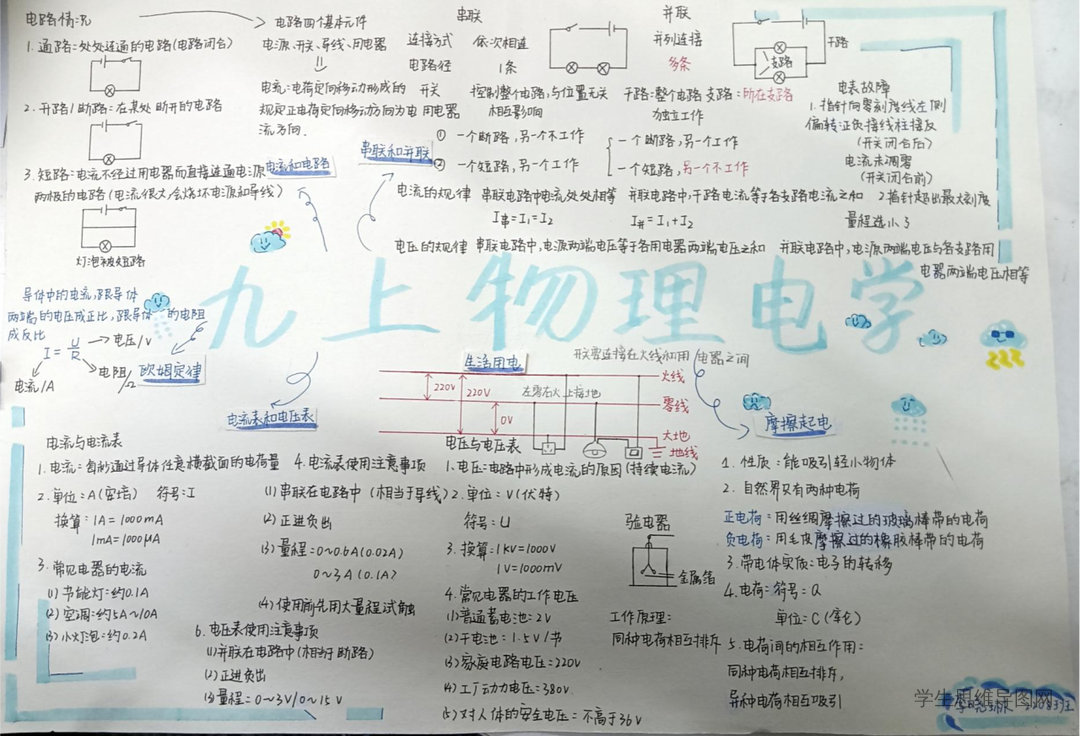 电路情况
1. 通路：处处连通的电路(电路闭合)
2. 开路/断路：在某处断开的电路
3. 短路：电流不经过用电器而直接连通电源
两极的电路(电流很大会烧坏电源和导线)
灯泡被短路
电路四个基本元件
电源、开关、导线、用电器
电流：电荷定向移动形成的
规定正电荷定向移动方向为电
流方向.
电流和电路
串联和并联
串联
并联
连接方式 依次相连 并列连接
电路径 1条 多条
开关 控制整个电路，与位置无关 干路：整个电路 支路：所在支路
用电器 相互影响 独立工作
① 一个断路，另一个不工作 一个断路，另一个工作
② 一个短路，另一个工作 一个短路，另一个不工作
干路
支路
电表故障
1. 指针向零刻度线左侧
偏转正负接线柱接反
(开关闭合后)
电流未调零
(开关闭合前)
2 指针超出最大刻度
量程选小了
电流的规律 串联电路中电流处处相等 并联电路中，干路电流等于各支路电流之和
I串=I₁=I₂ I并=I₁+I₂
电压的规律 串联电路中，电源两端电压等于各用电器两端电压之和 并联电路中，电源两端电压与各支路用
电器两端电压相等
九上物理电学
导体中的电流，跟导体
两端的电压成正比，跟导体的电阻
成反比
I=U/R
电压/V
电流/A
电阻/Ω
欧姆定律
电流表和电压表
生活用电
开关要连接在火线和用电器之间
火线
零线
大地
地线
220V
220V
0V
左零右火上接地
摩擦起电
电流与电流表
1. 电流：每秒通过导体任意横截面的电荷量
2. 单位：A(安培) 符号：I
换算：1A=1000mA
1mA=1000μA
3. 常见电器的电流
(1) 节能灯：约0.1A
(2) 空调：约5A～10A
(3) 小灯泡：约0.2A
4. 电流表使用注意事项
(1) 串联在电路中(相当于导线)
(2) 正进负出
(3) 量程：0～0.6A(0.02A)
0～3A(0.1A)
(4) 使用前先用大量程试触
6. 电压表使用注意事项
(1) 并联在电路中(相当断路)
(2) 正进负出
(3) 量程：0～3V/0～15V
电压与电压表
1. 电压：电路中形成电流的原因(持续电流)
2. 单位：V(伏特)
符号：U
3. 换算：1kV=1000V
1V=1000mV
4. 常见电器的工作电压
(1) 普通蓄电池：2V
(2) 干电池：1.5V/节
(3) 家庭电路电压：220V
(4) 工厂动力电压：380V.
(5) 对人体的安全电压：不高于36V
验电器
金属箔
工作原理：
同种电荷相互排斥
1. 性质：能吸引轻小物体
2. 自然界只有两种电荷
正电荷：用丝绸摩擦过的玻璃棒带的电荷
负电荷：用毛皮摩擦过的橡胶棒带的电荷
3. 带电体实质：电子的转移
4. 电荷：符号：Q
单位：C(库仑)
5. 电荷间的相互作用：
同种电荷相互排斥，
异种电荷相互吸引
学生思维导图网